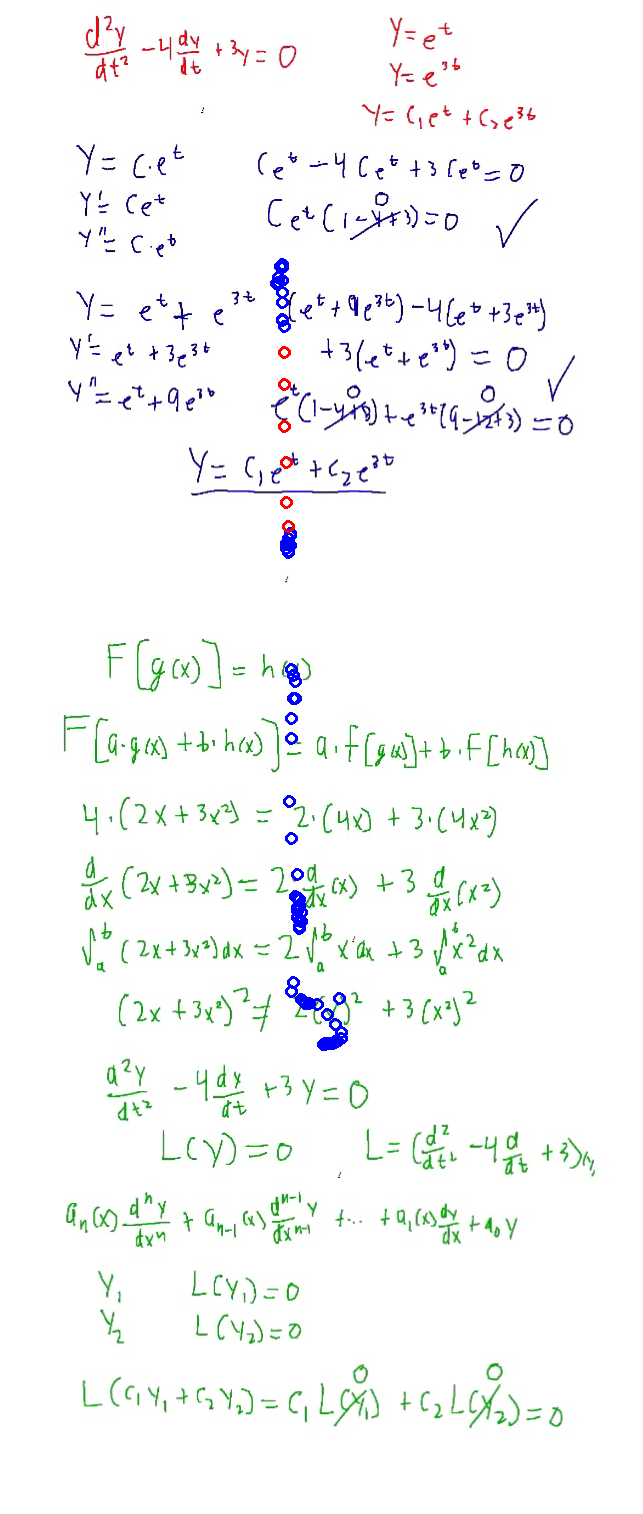 d²y/dt² - 4 dy/dt + 3y = 0
y = e^t
y = e^3t
y = c₁e^t + c₂e^3t
y = c·e^t
y' = ce^t
y'' = c·e^t
ce^t - 4ce^t + 3ce^t = 0
ce^t(1-4+3) = 0 ✓
0
y = e^t + e^3t
y' = e^t + 3e^3t
y'' = e^t + 9e^3t
(e^t + 9e^3t) - 4(e^t + 3e^3t)
+3(e^t + e^3t) = 0 ✓
0 0
e^t(1-4+3) + e^3t(9-12+3) = 0
y = c₁e^t + c₂e^3t
F[g(x)] = h(x)
F[a·g(x) + b·h(x)] = a·f[g(x)] + b·F[h(x)]
4·(2x + 3x²) = 2·(4x) + 3·(4x²)
d/dx (2x + 3x²) = 2 d/dx (x) + 3 d/dx (x²)
∫_a^b (2x + 3x²)dx = 2∫_a^b x dx + 3∫_a^b x² dx
(2x + 3x²)² ≠ 2( )² + 3(x²)²
d²y/dt² - 4 dy/dt + 3y = 0
L(y) = 0 L = (d²/dt² - 4 d/dt + 3)
aₙ(x) dⁿy/dxⁿ + aₙ₋₁(x) dⁿ⁻¹y/dxⁿ⁻¹ + ... + a₁(x) dy/dx + a₀y
y₁ L(y₁) = 0
y₂ L(y₂) = 0
0 0
L(c₁y₁ + c₂y₂) = c₁L(y₁) + c₂L(y₂) = 0